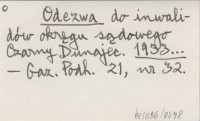 Odezwa do inwali-
dów okręgu sądowego
Czarny Dunajec. 1933...
— Gaz. Podh. 21, nr 32.